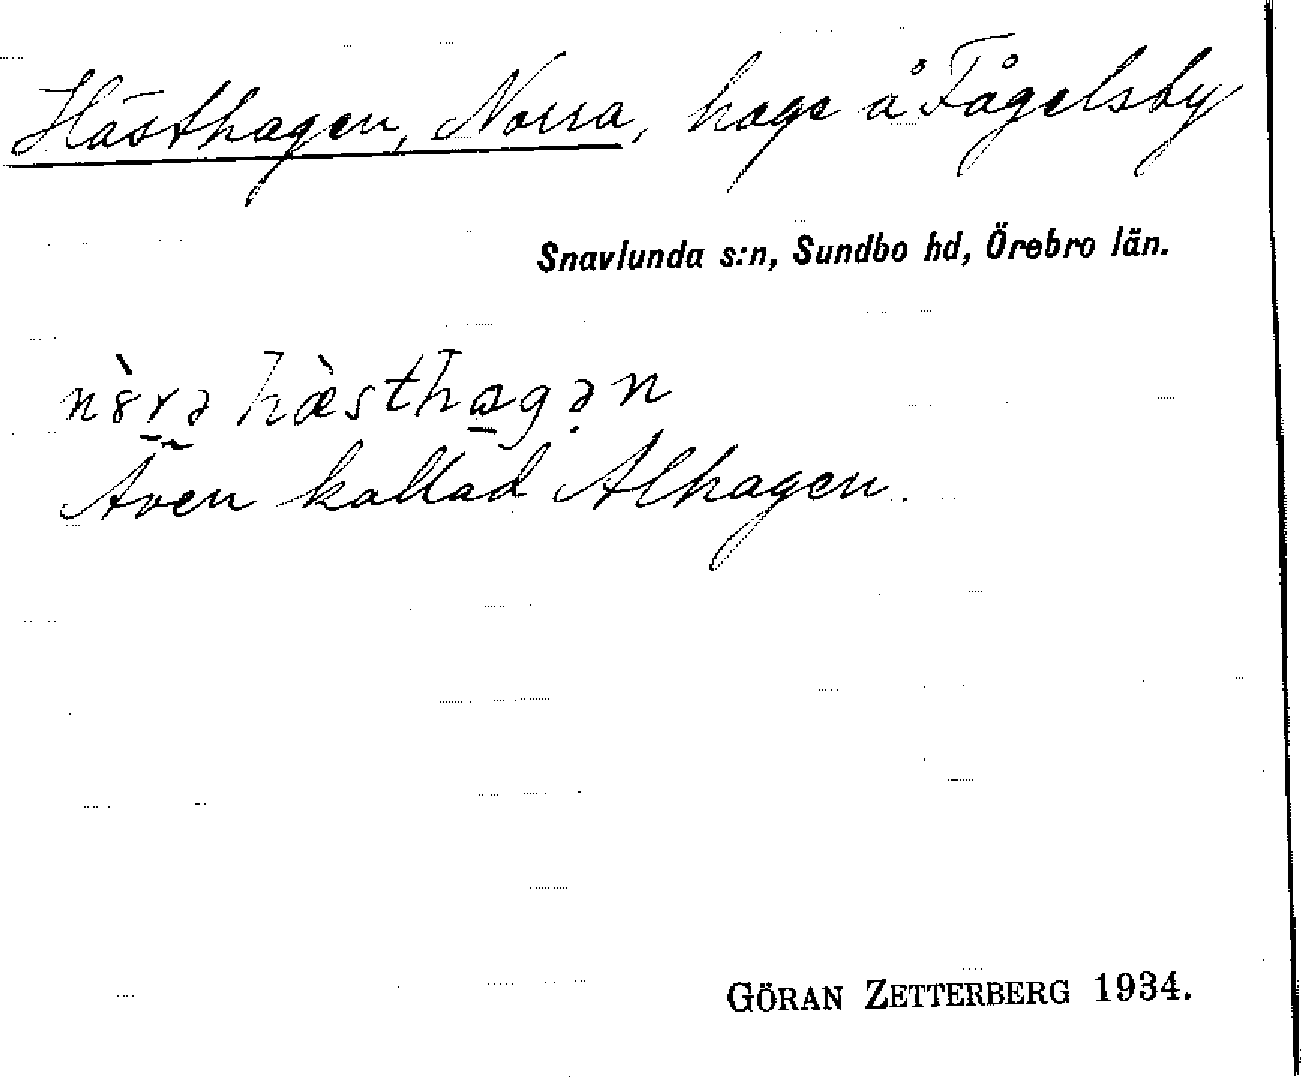 Hästhagen, Norra, hage å Fågelsby
Snavlunda s:n, Sundbo hd, Örebro län.
nò̱rə hæ̀sthagən
Även kallad Alhagen.
GÖRAN ZETTERBERG 1934.